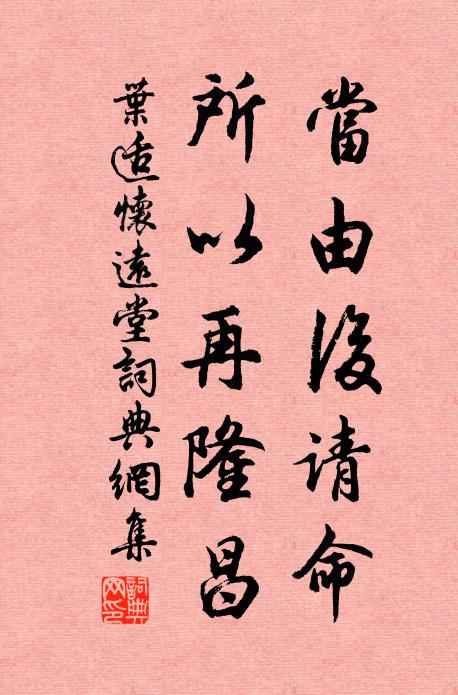 當由後请命
所以再隆昌
葉适懷遠堂詞典網集
詞典网印